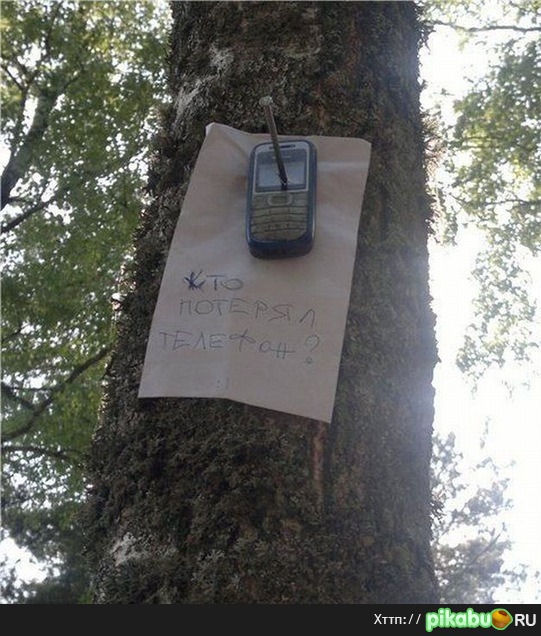 Кто
ПОТЕРЯЛ
ТЕЛЕФОН?
:)
Хттп://pikabu.RU